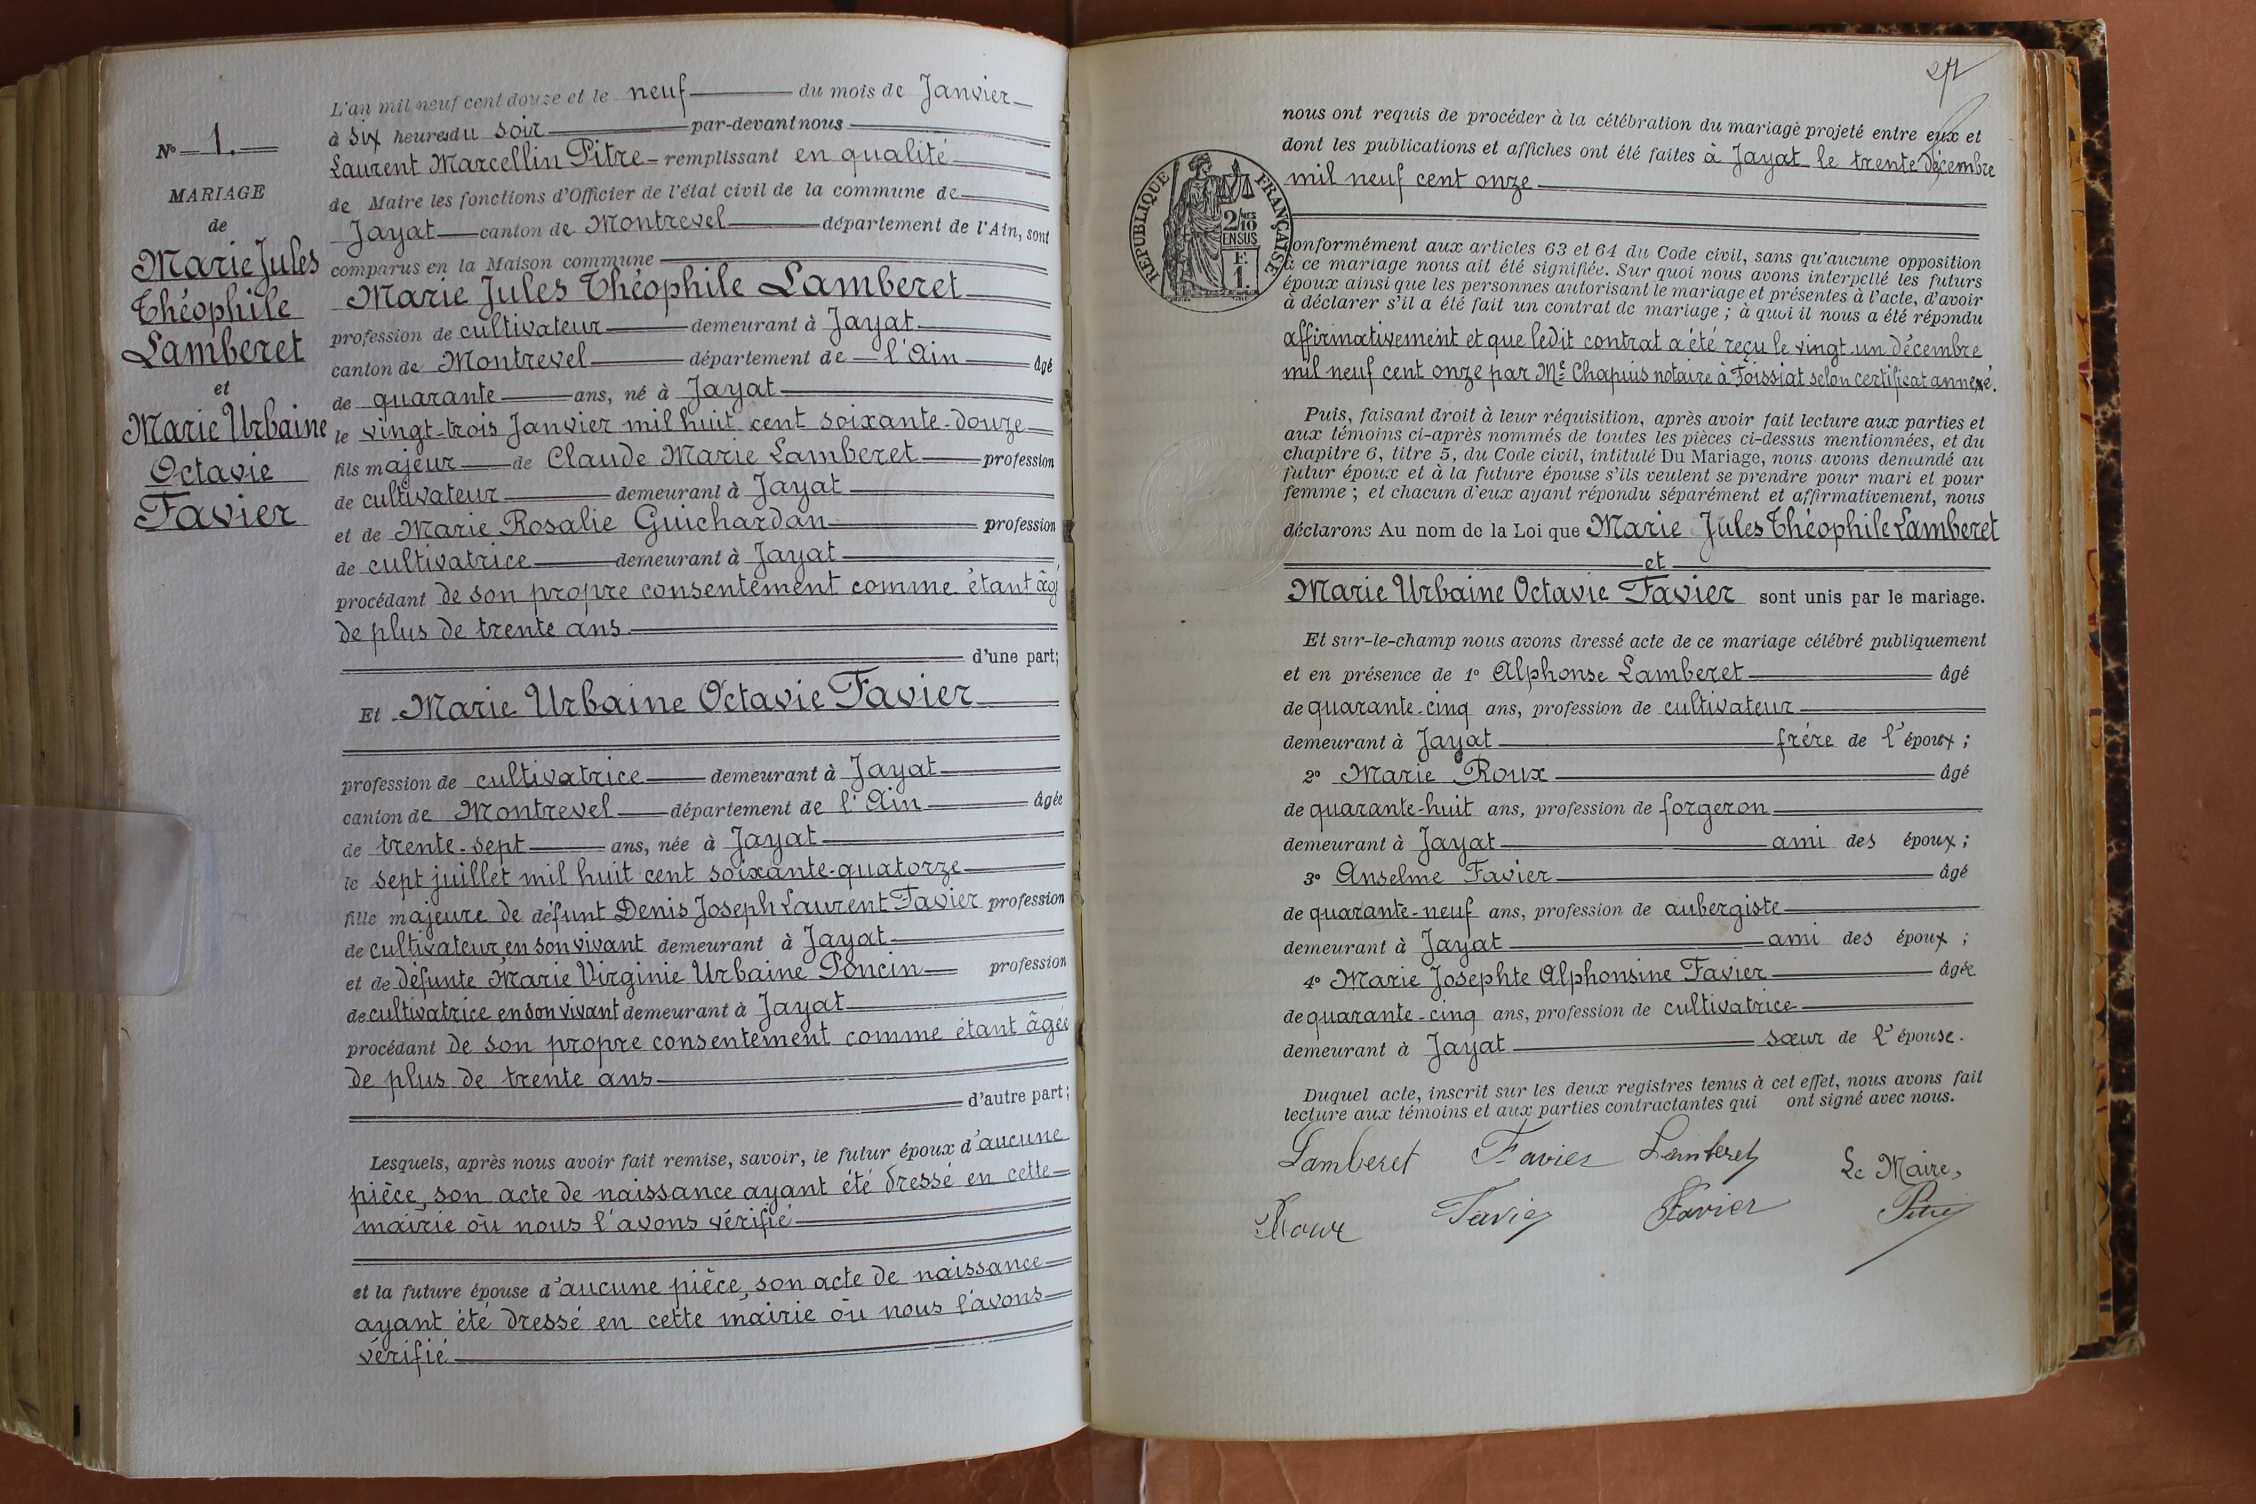 N° 1.
MARIAGE
de
Marie Jules
Théophile
Lamberet
et
Marie Urbaine
Octavie
Favier
L'an mil neuf cent douze et le neuf du mois de Janvier
à six heures du soir par-devant nous
Laurent Marcellin Pitre remplissant en qualité
de Maire les fonctions d'Officier de l'état civil de la commune de
Jayat canton de Montrevel département de l'Ain, sont
comparus en la Maison commune
Marie Jules Théophile Lamberet
profession de cultivateur demeurant à Jayat
canton de Montrevel département de l'Ain âgé
de quarante ans, né à Jayat
le vingt-trois Janvier mil huit cent soixante-douze
fils majeur de Claude Marie Lamberet profession
de cultivateur demeurant à Jayat
et de Marie Rosalie Guichardan profession
de cultivatrice demeurant à Jayat
procédant de son propre consentement comme étant âgé
de plus de trente ans
d'une part;
Et Marie Urbaine Octavie Favier
profession de cultivatrice demeurant à Jayat
canton de Montrevel département de l'Ain âgée
de trente-sept ans, née à Jayat
le sept juillet mil huit cent soixante-quatorze
fille majeure de défunt Denis Joseph Laurent Favier profession
de cultivateur en son vivant demeurant à Jayat
et de défunte Marie Virginie Urbaine Poncin profession
de cultivatrice en son vivant demeurant à Jayat
procédant de son propre consentement comme étant âgée
de plus de trente ans
d'autre part;
Lesquels, après nous avoir fait remise, savoir, le futur époux d'aucune
pièce, son acte de naissance ayant été dressé en cette
mairie où nous l'avons vérifié
et la future épouse d'aucune pièce, son acte de naissance
ayant été dressé en cette mairie où nous l'avons
vérifié
nous ont requis de procéder à la célébration du mariage projeté entre eux et
dont les publications et affiches ont été faites à Jayat le trente décembre
mil neuf cent onze
RÉPUBLIQUE FRANÇAISE
2/10
EN SUS
F.
1.
conformément aux articles 63 et 64 du Code civil, sans qu'aucune opposition
à ce mariage nous ait été signifiée. Sur quoi nous avons interpellé les futurs
époux ainsi que les personnes autorisant le mariage et présentes à l'acte, d'avoir
à déclarer s'il a été fait un contrat de mariage ; à quoi il nous a été répondu
affirmativement et que ledit contrat a été reçu le vingt-un décembre
mil neuf cent onze par Me Chapuis notaire à Foissiat selon certificat annexé.
Puis, faisant droit à leur réquisition, après avoir fait lecture aux parties et
aux témoins ci-après nommés de toutes les pièces ci-dessus mentionnées, et du
chapitre 6, titre 5, du Code civil, intitulé Du Mariage, nous avons demandé au
futur époux et à la future épouse s'ils veulent se prendre pour mari et pour
femme ; et chacun d'eux ayant répondu séparément et affirmativement, nous
déclarons Au nom de la Loi que Marie Jules Théophile Lamberet
et
Marie Urbaine Octavie Favier sont unis par le mariage.
Et sur-le-champ nous avons dressé acte de ce mariage célébré publiquement
et en présence de 1° Alphonse Lamberet âgé
de quarante-cinq ans, profession de cultivateur
demeurant à Jayat frère de l'époux ;
2° Marie Roux âgé
de quarante-huit ans, profession de forgeron
demeurant à Jayat ami des époux ;
3° Anselme Favier âgé
de quarante-neuf ans, profession de aubergiste
demeurant à Jayat ami des époux ;
4° Marie Josephte Alphonsine Favier âgée
de quarante-cinq ans, profession de cultivatrice
demeurant à Jayat sœur de l'épouse.
Duquel acte, inscrit sur les deux registres tenus à cet effet, nous avons fait
lecture aux témoins et aux parties contractantes qui ont signé avec nous.
Lamberet Favier Lamberet Le Maire,
Roux Favier Favier Pitre